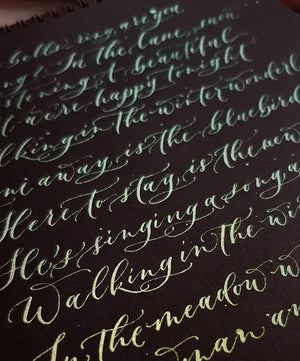 bells ring are you
? In the lane, snow
listening A beautiful
we're happy tonight
lking in the winter wonderl
away is the bluebird
Here to stay is the new
He's singing a song a
Walking in the wi
In the meadow w
man an